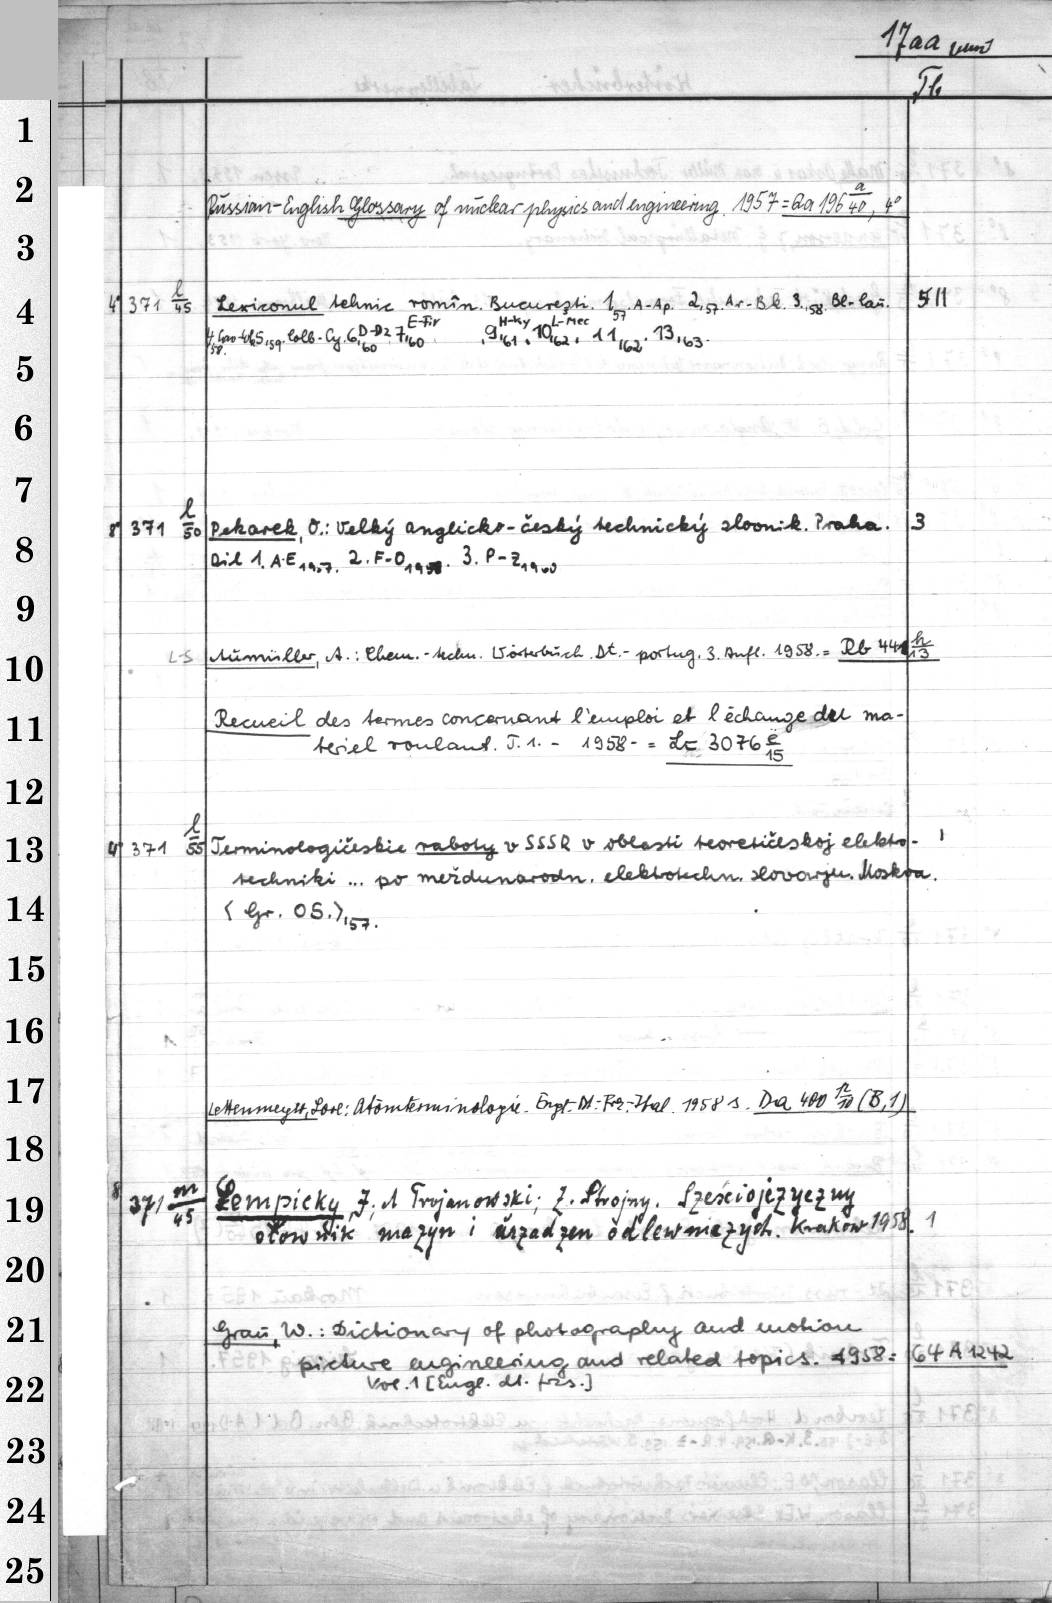 17aa
Tb
1
2
Russian-English Glossary of nuclear physics and engineering. 1957 = Qa 196 a/40, 4°
3
4 4° 371 l/45 Lexiconul tehnic romîn. Bucureşti. 1,57 A-Ap. 2,57. Ar-Bk. 3,58. Bl- 11
58. 5,59. Colb-Cy. 6,60 D-Dz 7,60 E-Fir 9,61. H-Ky 10,62. L-Mec 11,62. 13,63.
5
6
7
8 8° 371 l/50 Pekarek, O.: Velký anglicko-český technický slovnik. Praha. 3
Dil 1. A-E 1957. 2. F-O 3. P-Z 1960
9
10 L-S A.: Chem.-techn. Wörterbuch. Dt.-portug. 3. Aufl. 1958. = Rb h/13
11 Recueil des termes concernant l'emploi et l'échange du ma-
teriel roulant. T. 1. - 1958- = 3076 e/15
12
13 4° 371 l/55 Terminologičeskie raboty v SSSR v oblasti teoretičeskoj elektro- 1
techniki ... po meždunarodn. elektrotechn. slovarju. Moskva.
14 ⟨Gr. OS.⟩,57.
15
16
17 Lettenmeyer, Lore: Atomterminologie. Engl.-Dt.-Frz.-Ital. 1958 s. Da 400 n/10 (B,1)
18
19 8 371 m/45 Łempicky, J., A Trojanowski; Z. Strojny. Sześciojęzyczny
słownik maszyn i urządzeń odlewniczych. Kraków 1958. 1
20
21 Grau, W.: Dictionary of photography and motion
picture engineering and related topics. 1958 = 64 A 1242
22 Vol. 1 [Engl. dt. frz.]
23
24
25